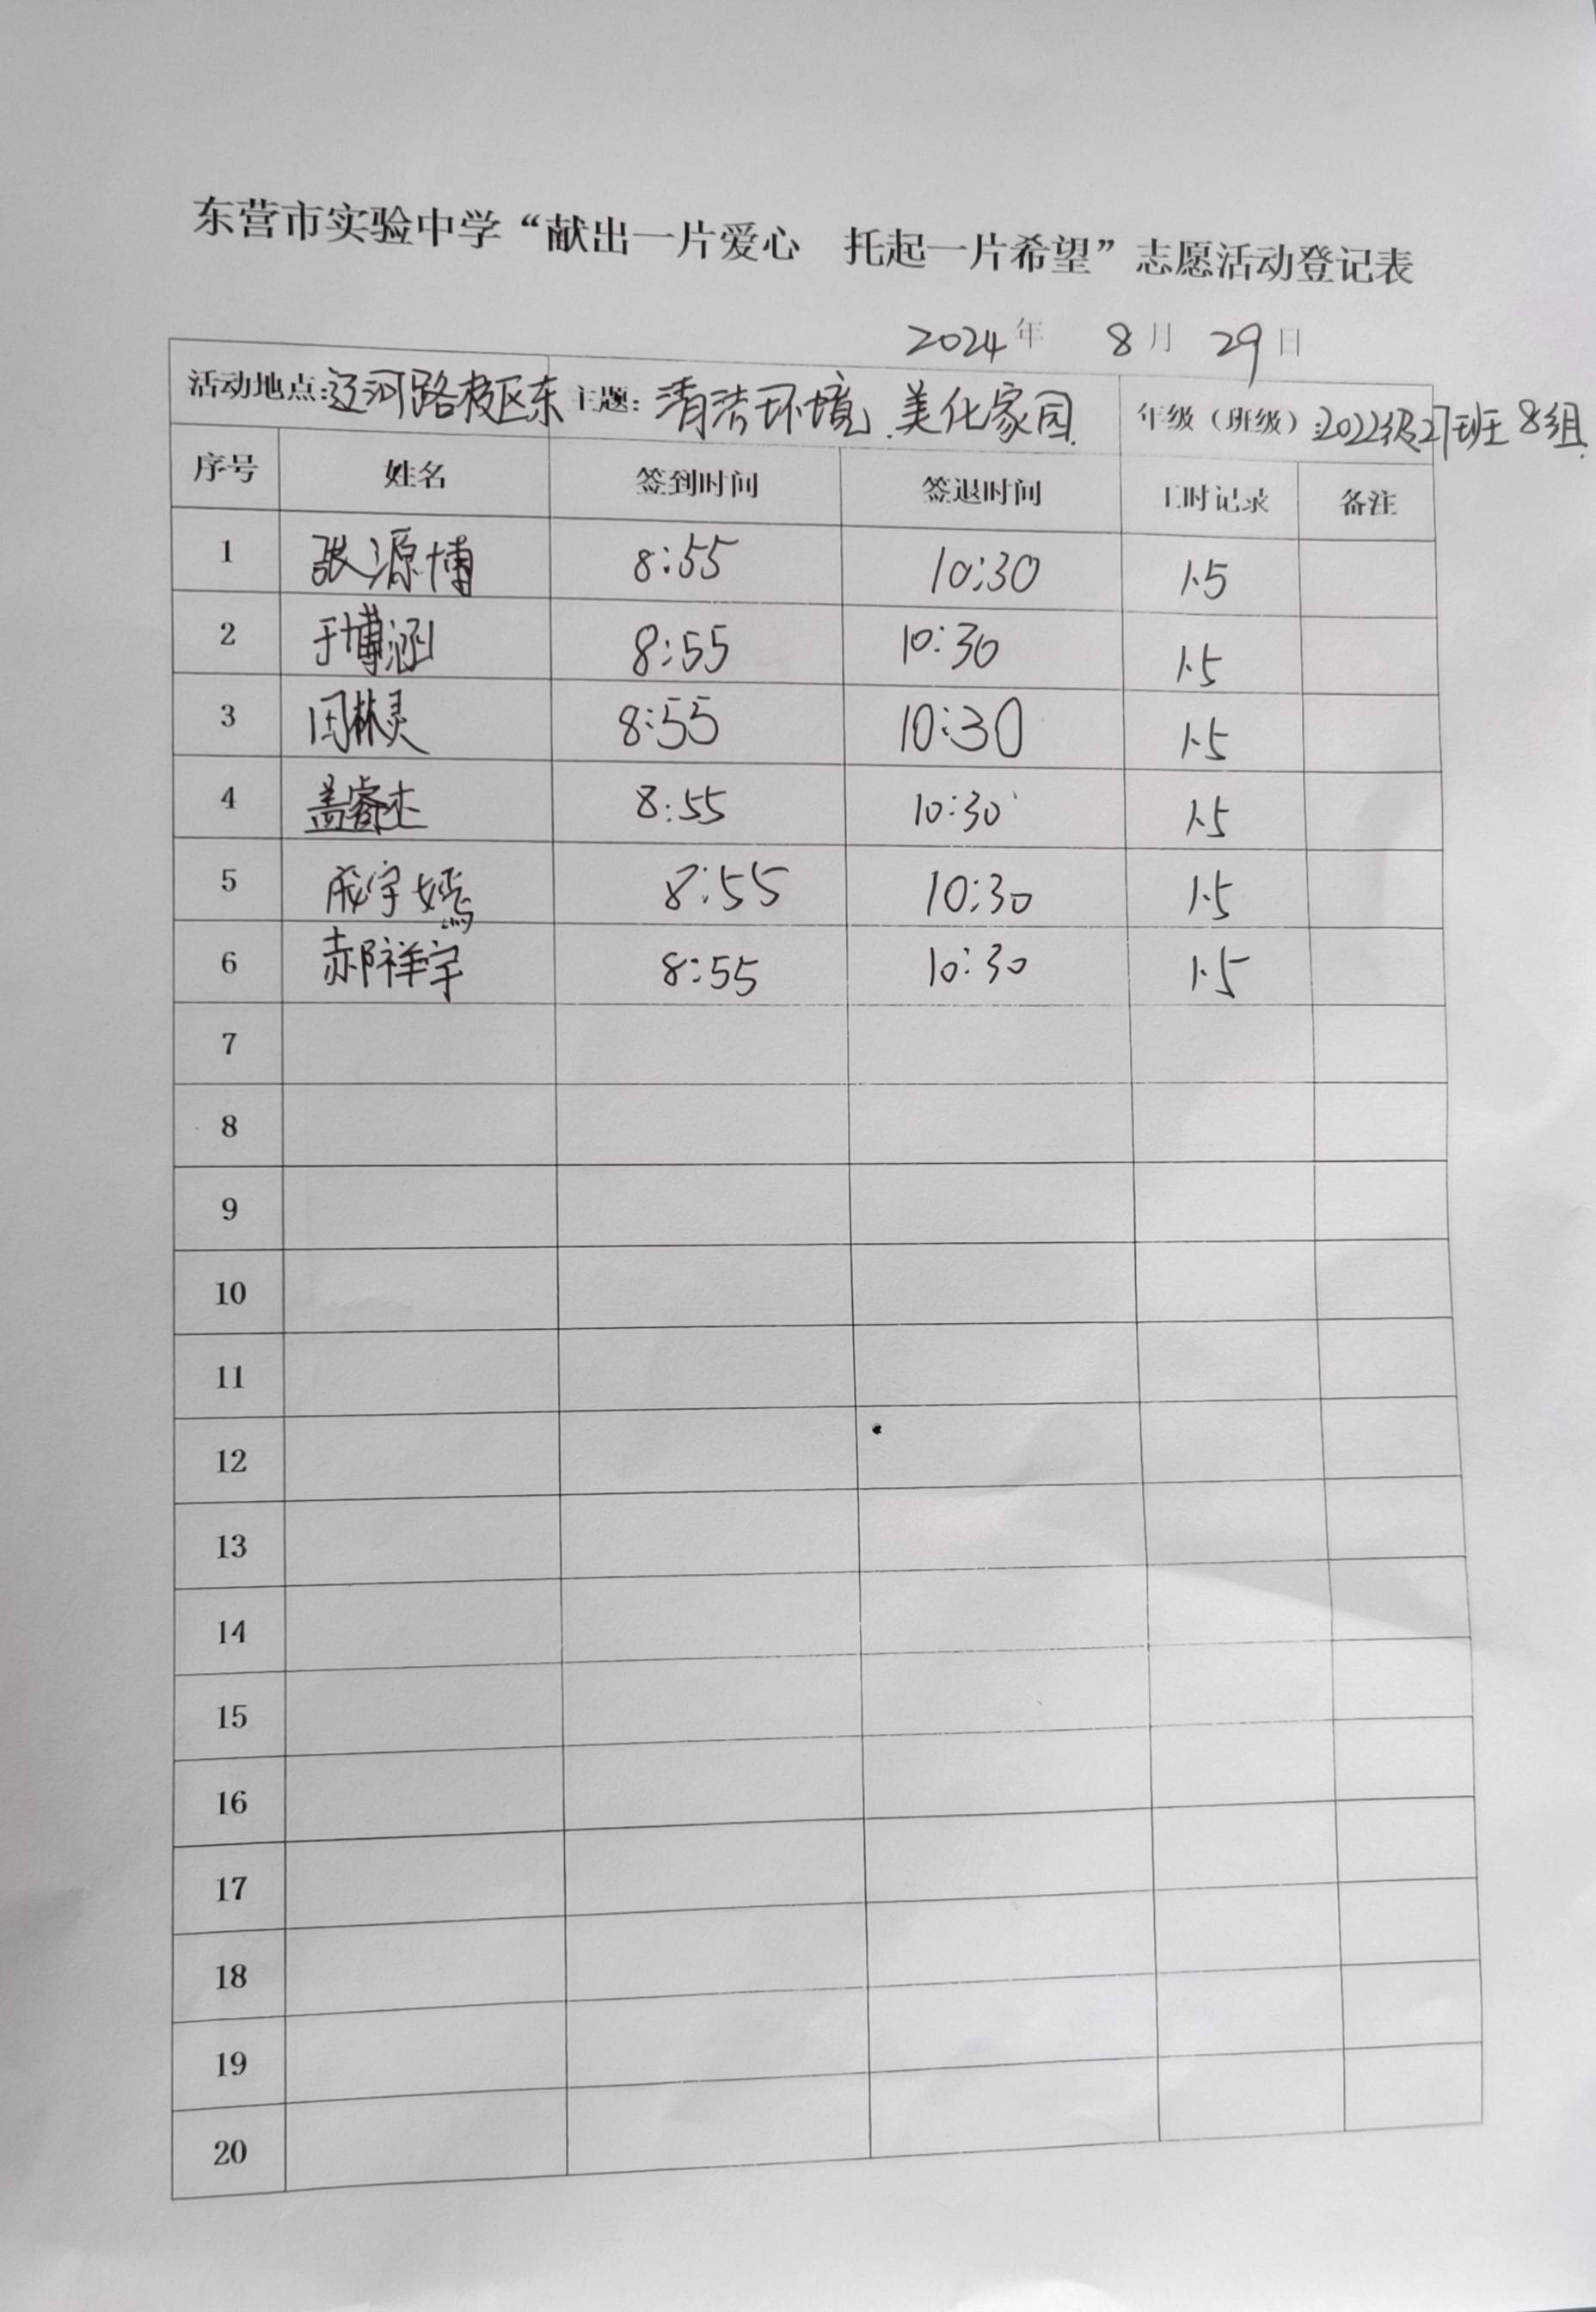 东营市实验中学“献出一片爱心 托起一片希望”志愿活动登记表
2024年 8月 29日
活动地点:辽河路校区东 主题: 清洁环境,美化家园. 年级(班级):2022级27班8组.
序号 姓名 签到时间 签退时间 工时记录 备注
1 张源博 8:55 10:30 1.5
2 于博涵 8:55 10:30 1.5
3 8:55 10:30 1.5
4 盖睿杰 8:55 10:30 1.5
5 成宇嫣 8:55 10:30 1.5
6 郝祥宇 8:55 10:30 1.5
7
8
9
10
11
12
13
14
15
16
17
18
19
20